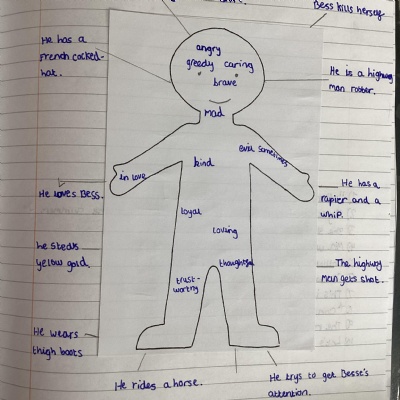 Bess kills herself
He has a
French cocked-
hat.
angry
greedy caring
brave
Mad
He is a highway
man robber.
evil sometimes
kind
in love
He loves Bess.
He has a
rapier and a
whip.
loyal
loving
he steals
yellow gold.
thoughtful
trust-
worthy
The highway
Man gets shot.
He wears
thigh boots
He rides a horse.
He trys to get Besse's
attention.